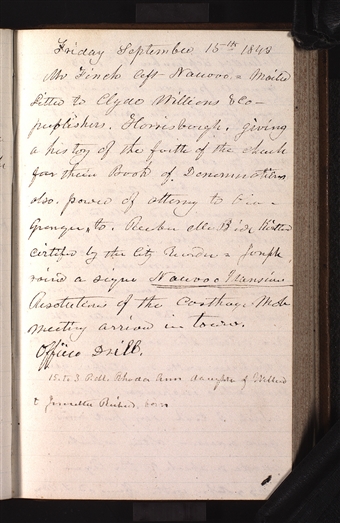 Friday September 15th 1843
Mr Finch left Nauvoo = Mailed
Letter to Clyde Williams & Co-
publishers. Harrisburgh. giving
a history of the faith of the church
for their Book of Denominations
also. power of attorney to Oliver
Granger, to. Reuben McBride, Kirtland
certified by the City Recorder & Joseph
raised a sign Nauvoo Mansion
Resolutions of the Carthage Mob
meeting arrived in town.
Officer Drill.
15. to 3 Rhoda Ann daughter of Willard
& Jennetta Richards, born